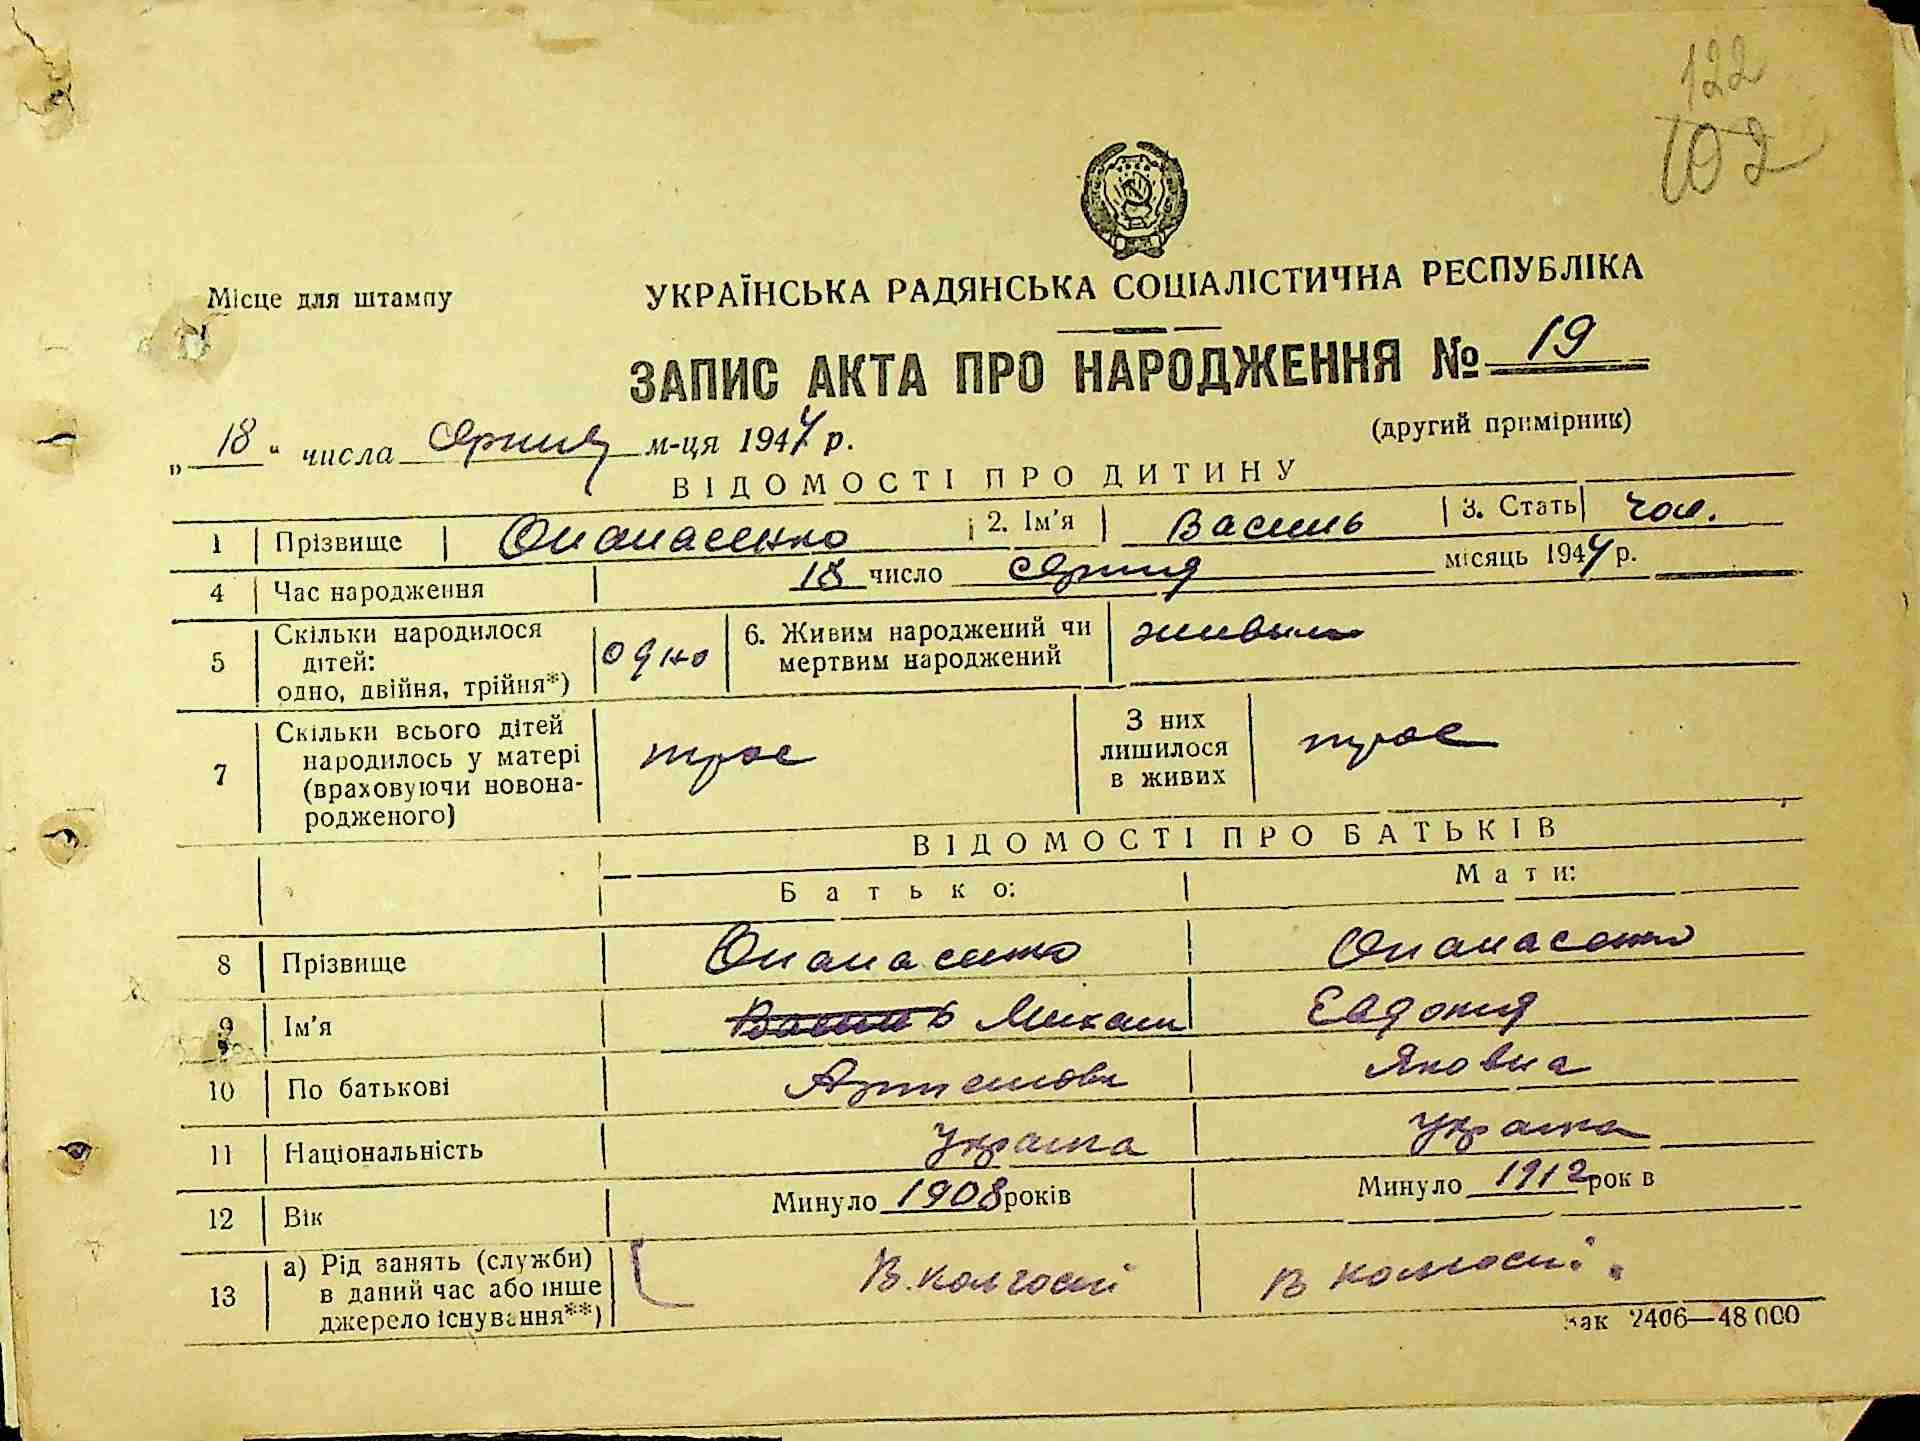 122
102
Місце для штампу
УКРАЇНСЬКА РАДЯНСЬКА СОЦІАЛІСТИЧНА РЕСПУБЛІКА
ЗАПИС АКТА ПРО НАРОДЖЕННЯ № 19
(другий примірник)
„ 18 “ числа м-ця 1944 р.
ВІДОМОСТІ ПРО ДИТИНУ
1 Прізвище Опанасенко 2. Ім'я Василь 3. Стать чол.
4 Час народження 18 число місяць 1944 р.
5 Скільки народилося дітей: одно, двійня, трійня*) одно 6. Живим народжений чи мертвим народжений живым
7 Скільки всього дітей народилось у матері (враховуючи новонародженого) трое З них лишилося в живих трое
ВІДОМОСТІ ПРО БАТЬКІВ
Батько: Мати:
8 Прізвище Опанасенко Опанасенко
9 Ім'я Василь Михаил Евдокия
10 По батькові Артемови Яковна
11 Національність Украина Украина
12 Вік Минуло 1908 років Минуло 1912 рок в
13 а) Рід занять (служби) в даний час або інше джерело існування**) В. колгоспі В колгоспі.
Зак 2406—48 000